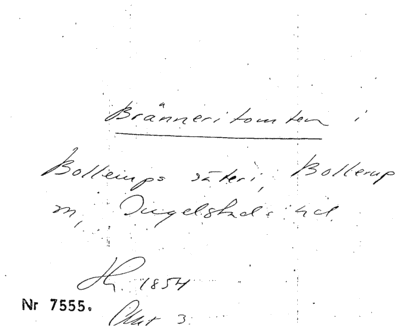 Bränneritomten i
Bollerups säteri, Bollerup
m, Ingelstads hd
1854
Nr 7555.
Akt 3.